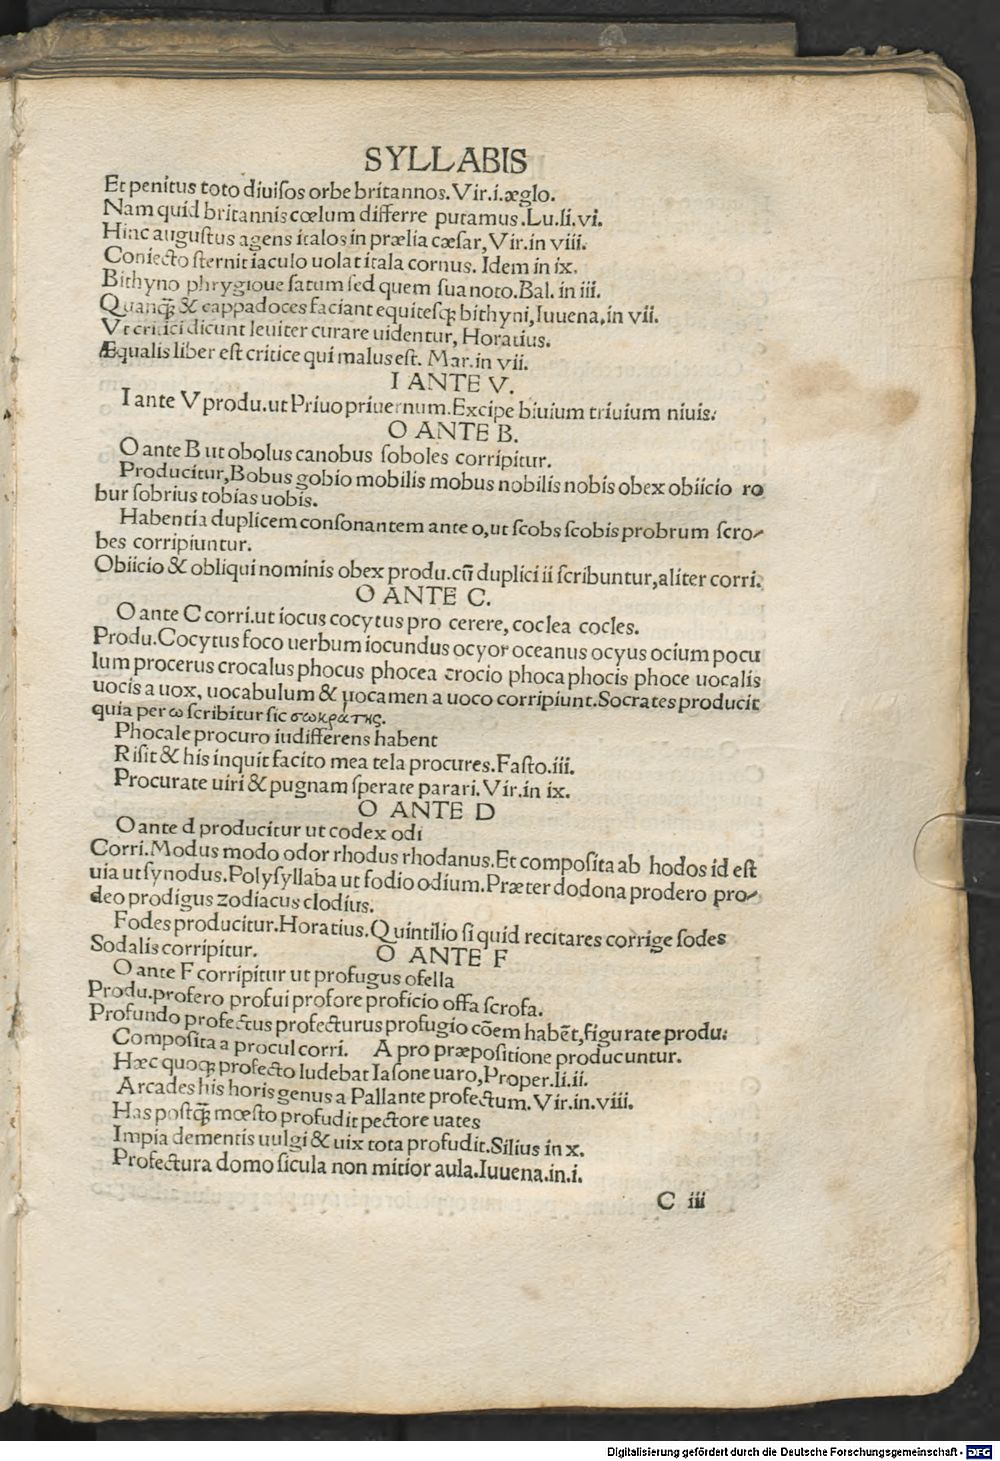 SYLLABIS
Et penitus toto diuiſos orbe britannos. Vir.i.æglo.
Nam quid britannis cœlum differre putamus .Lu.li.vi.
Hinc auguſtus agens italos in prælia cæſar, Vir.in viii.
Coniecto ſternit iaculo uolat itala cornus. Idem in ix.
Bithyno phrygioue ſatum ſed quem ſua noto.Bal. in iii.
Quanq̃ & cappadoces faciant equiteſq; bithyni, Iuuena.in vii.
Vt critici dicunt leuiter curare uidentur, Horatius.
Æqualis liber eſt critice qui malus eſt. Mar.in vii.
I ANTE V.
I ante V produ.ut Priuo priuernum.Excipe biuium triuium niuis.
O ANTE B.
O ante B ut obolus canobus ſoboles corripitur.
Producitur, Bobus gobio mobilis mobus nobilis nobis obex obiicio ro
bur ſobrius tobias uobis.
Habentia duplicem conſonantem ante o,ut ſcobs ſcobis probrum ſcro-
bes corripiuntur.
Obiicio & obliqui nominis obex produ.cū duplici ii ſcribuntur,aliter corri.
O ANTE C.
O ante C corri.ut iocus cocytus pro cerere, coclea cocles.
Produ.Cocytus foco uerbum iocundus ocyor oceanus ocyus ocium pocu
lum procerus crocalus phocus phocea crocio phoca phocis phoce uocalis
uocis a uox, uocabulum & uocamen a uoco corripiunt.Socrates producit
quia per ω ſcribitur ſic σωκράτης.
Phocale procuro iudifferens habent
Riſit & his inquit facito mea tela procures.Faſto.iii.
Procurate uiri & pugnam ſperate parari.Vir.in ix.
O ANTE D
O ante d producitur ut codex odi
Corri.Modus modo odor rhodus rhodanus.Et compoſita ab hodos id eſt
uia ut ſynodus.Polyſyllaba ut fodio odium.Præter dodona prodero pro-
deo prodigus zodiacus clodius.
Fodes producitur.Horatius.Quintilio ſi quid recitares corrige ſodes
Sodalis corripitur. O ANTE F
O ante F corripitur ut profugus ofella
Produ.profero profui profore proficio offa ſcrofa.
Profundo profectus profecturus profugio cōem habēt,figurate produ.
Compoſita a procul corri. A pro præpoſitione producuntur.
Hæc quoq; profecto ludebat Iaſone uaro, Proper.li.ii.
Arcades his horis genus a Pallante profectum.Vir.in.viii.
Has poſtq̃ mœſto profudit pectore uates
Impia dementis uulgi & uix tota profudit.Silius in x.
Profectura domo ſicula non mitior aula.Iuuena.in.i.
C iii
Digitalisierung gefördert durch die Deutsche Forschungsgemeinschaft - DFG